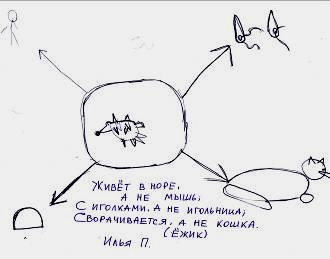 Живёт в норе,
а не мышь;
С иголками, а не игольница;
Сворачивается, а не кошка.
(Ёжик)
Илья П.